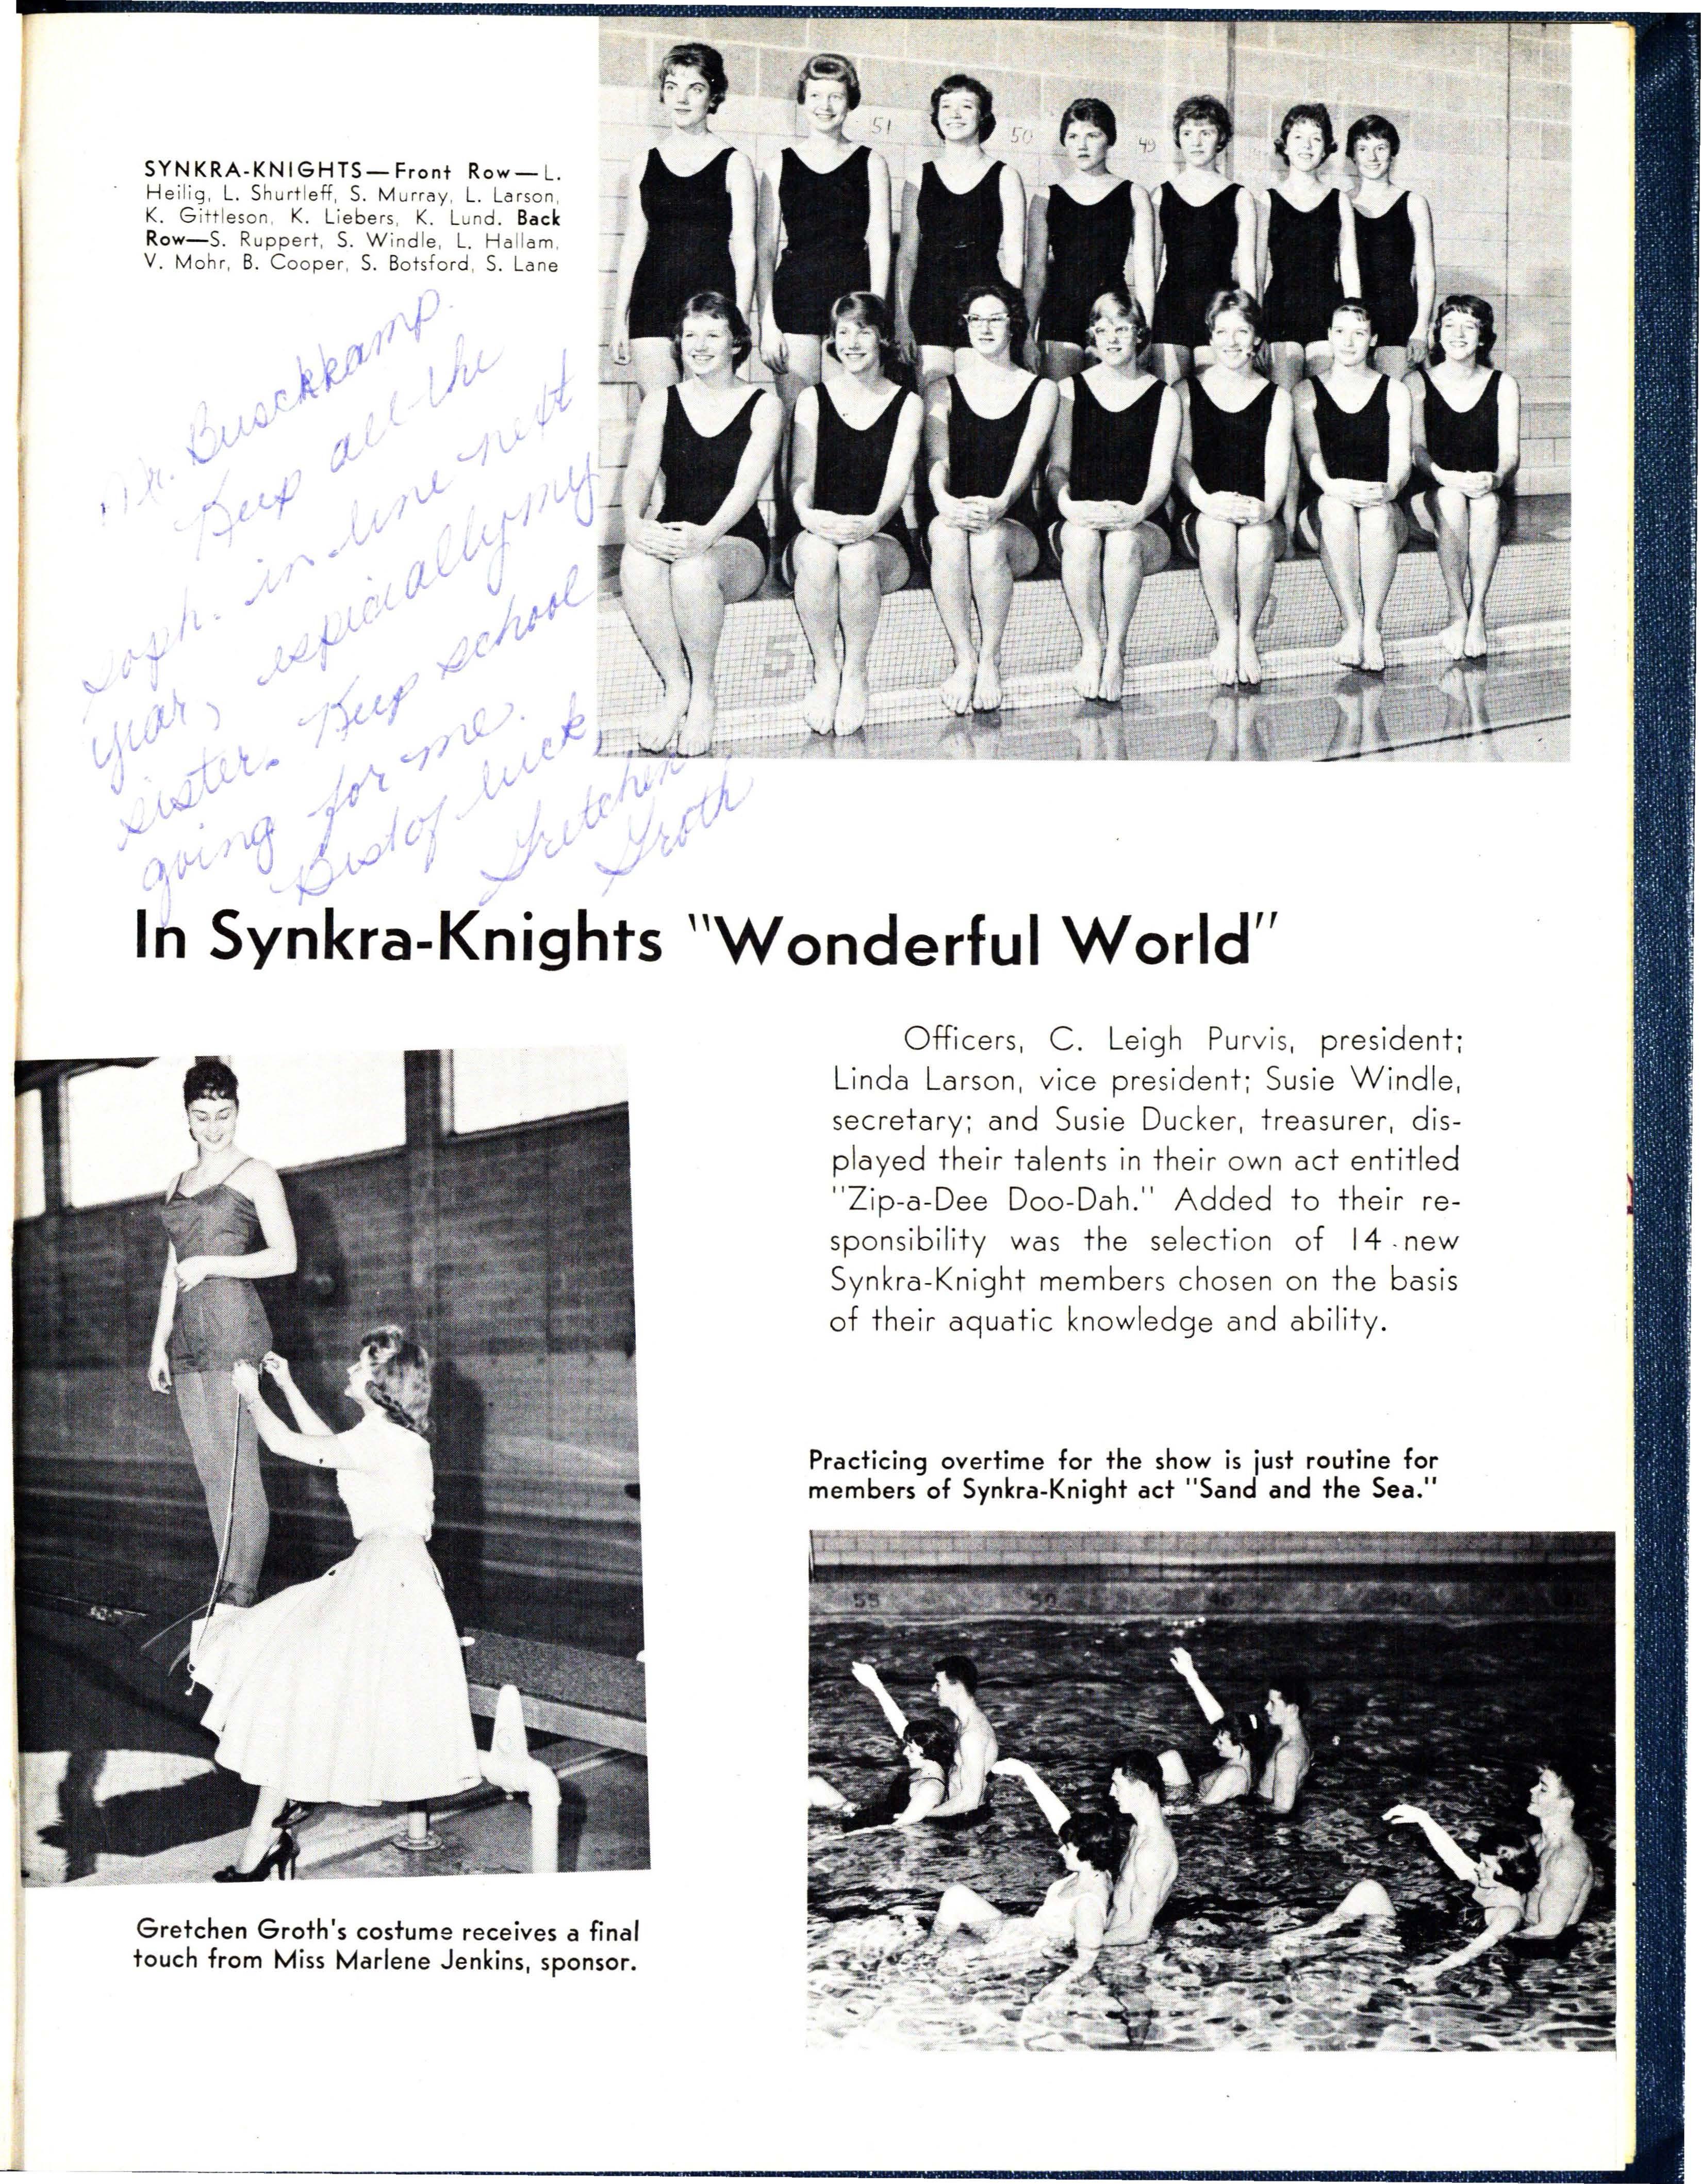 SYNKRA-KNIGHTS—Front Row—L.
Heilig, L. Shurtleff, S. Murray, L. Larson,
K. Gittleson, K. Liebers, K. Lund. Back
Row—S. Ruppert, S. Windle, L. Hallam,
V. Mohr, B. Cooper, S. Botsford, S. Lane
51
50
49
5
Mr. Buschkamp.
Keep all the
soph. in line next
year, espicially my
sister. Keep school
going for me.
Best of luck,
Gretchen
Groth
In Synkra-Knights "Wonderful World"
Officers, C. Leigh Purvis, president;
Linda Larson, vice president; Susie Windle,
secretary; and Susie Ducker, treasurer, dis-
played their talents in their own act entitled
"Zip-a-Dee Doo-Dah." Added to their re-
sponsibility was the selection of 14 new
Synkra-Knight members chosen on the basis
of their aquatic knowledge and ability.
Practicing overtime for the show is just routine for
members of Synkra-Knight act "Sand and the Sea."
55 50 45 40
Gretchen Groth's costume receives a final
touch from Miss Marlene Jenkins, sponsor.